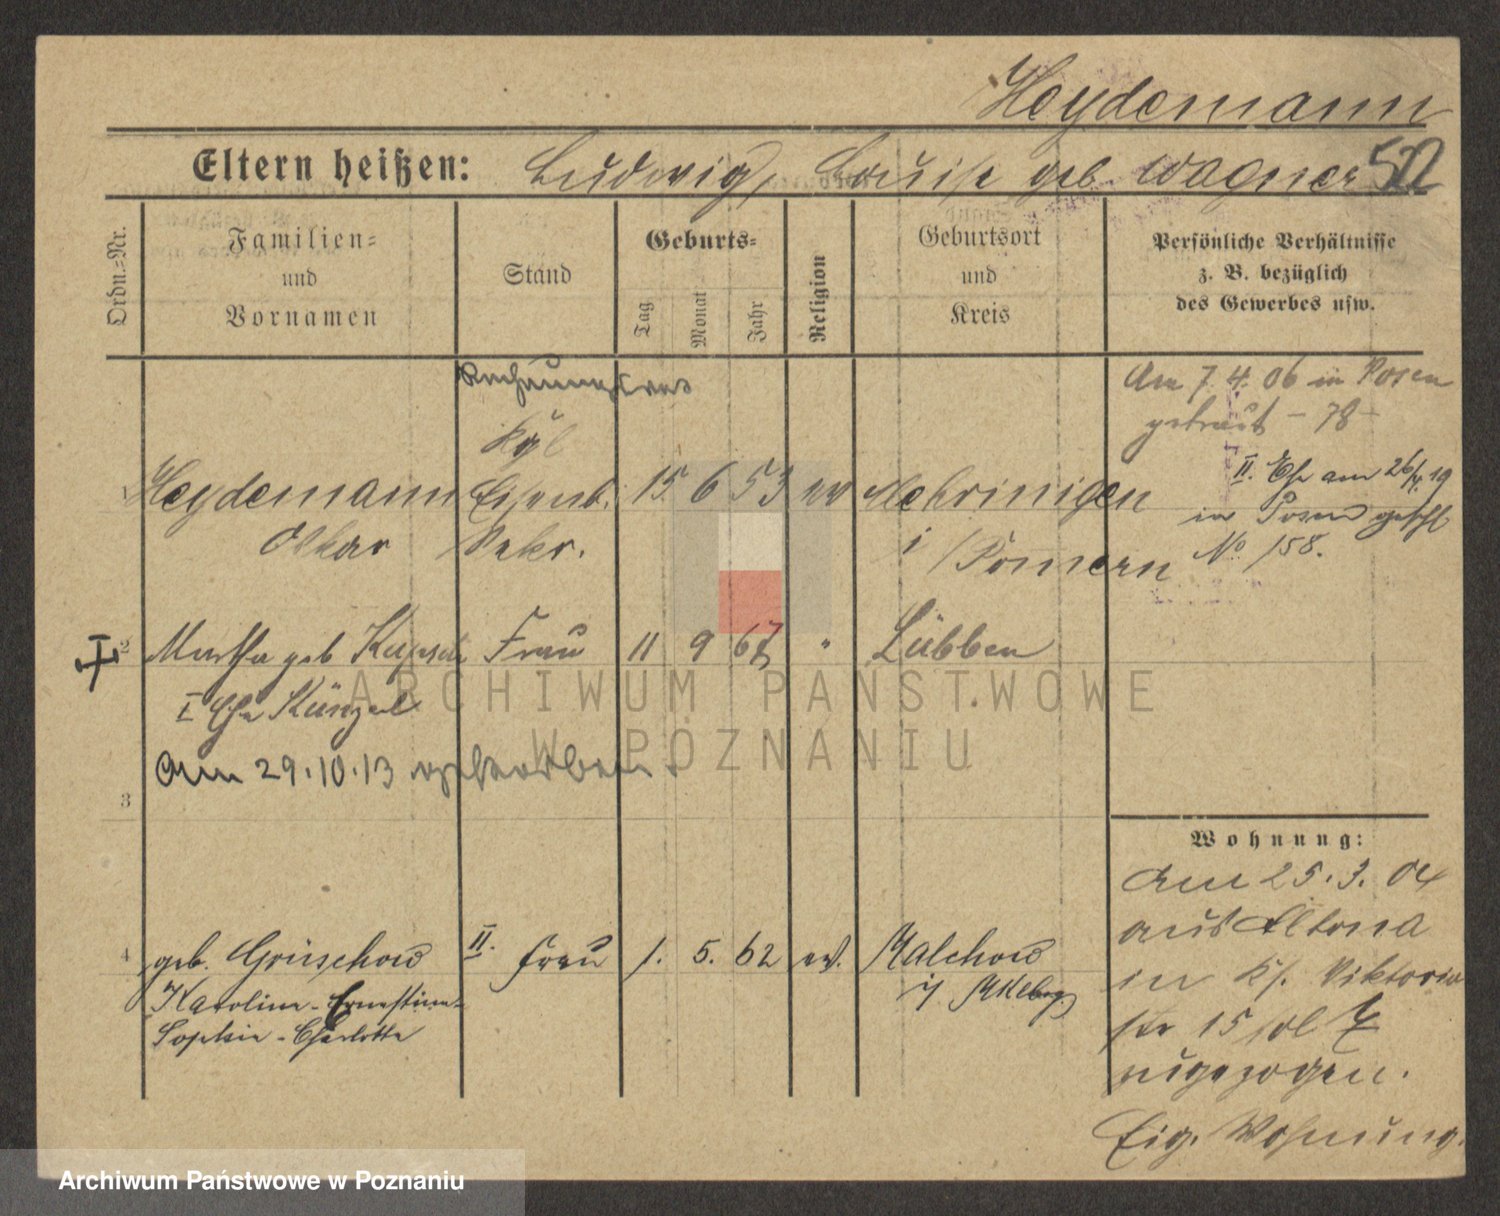 Heydemann
Eltern heißen: Ludwig, Louise geb. Wagner 522
Ordn.-Nr.
Familien-
und
Vornamen
Stand
Geburts-
Tag
Monat
Jahr
Religion
Geburtsort
und
Kreis
Persönliche Verhältnisse
z. B. bezüglich
des Gewerbes usw.
Rechnungsrat
Kgl
1 Heydemann Eisenb. 15 6 53 ev
Oskar Sekr. i/Pommern
Am 7. 4. 06 in Posen
getraut - 78 -
II. Ehe am 19
in Posen geschl
No 158.
2 Martha geb Frau 11 9 67 " Lübben
I Ehe Künzel
am 29.10.13 gestorben.
3
4 geb. Grüschow II. Frau 1. 5. 62 ev. Malchow
Karoline-Ernestine- i/ Mklbg.
Sophie-Charlotte
Wohnung:
Am 25. 3. 04
aus Altona
in Viktoria
str 15
zugezogen.
Eig. Wohnung.
ARCHIWUM PAŃSTWOWE
W POZNANIU
Archiwum Państwowe w Poznaniu